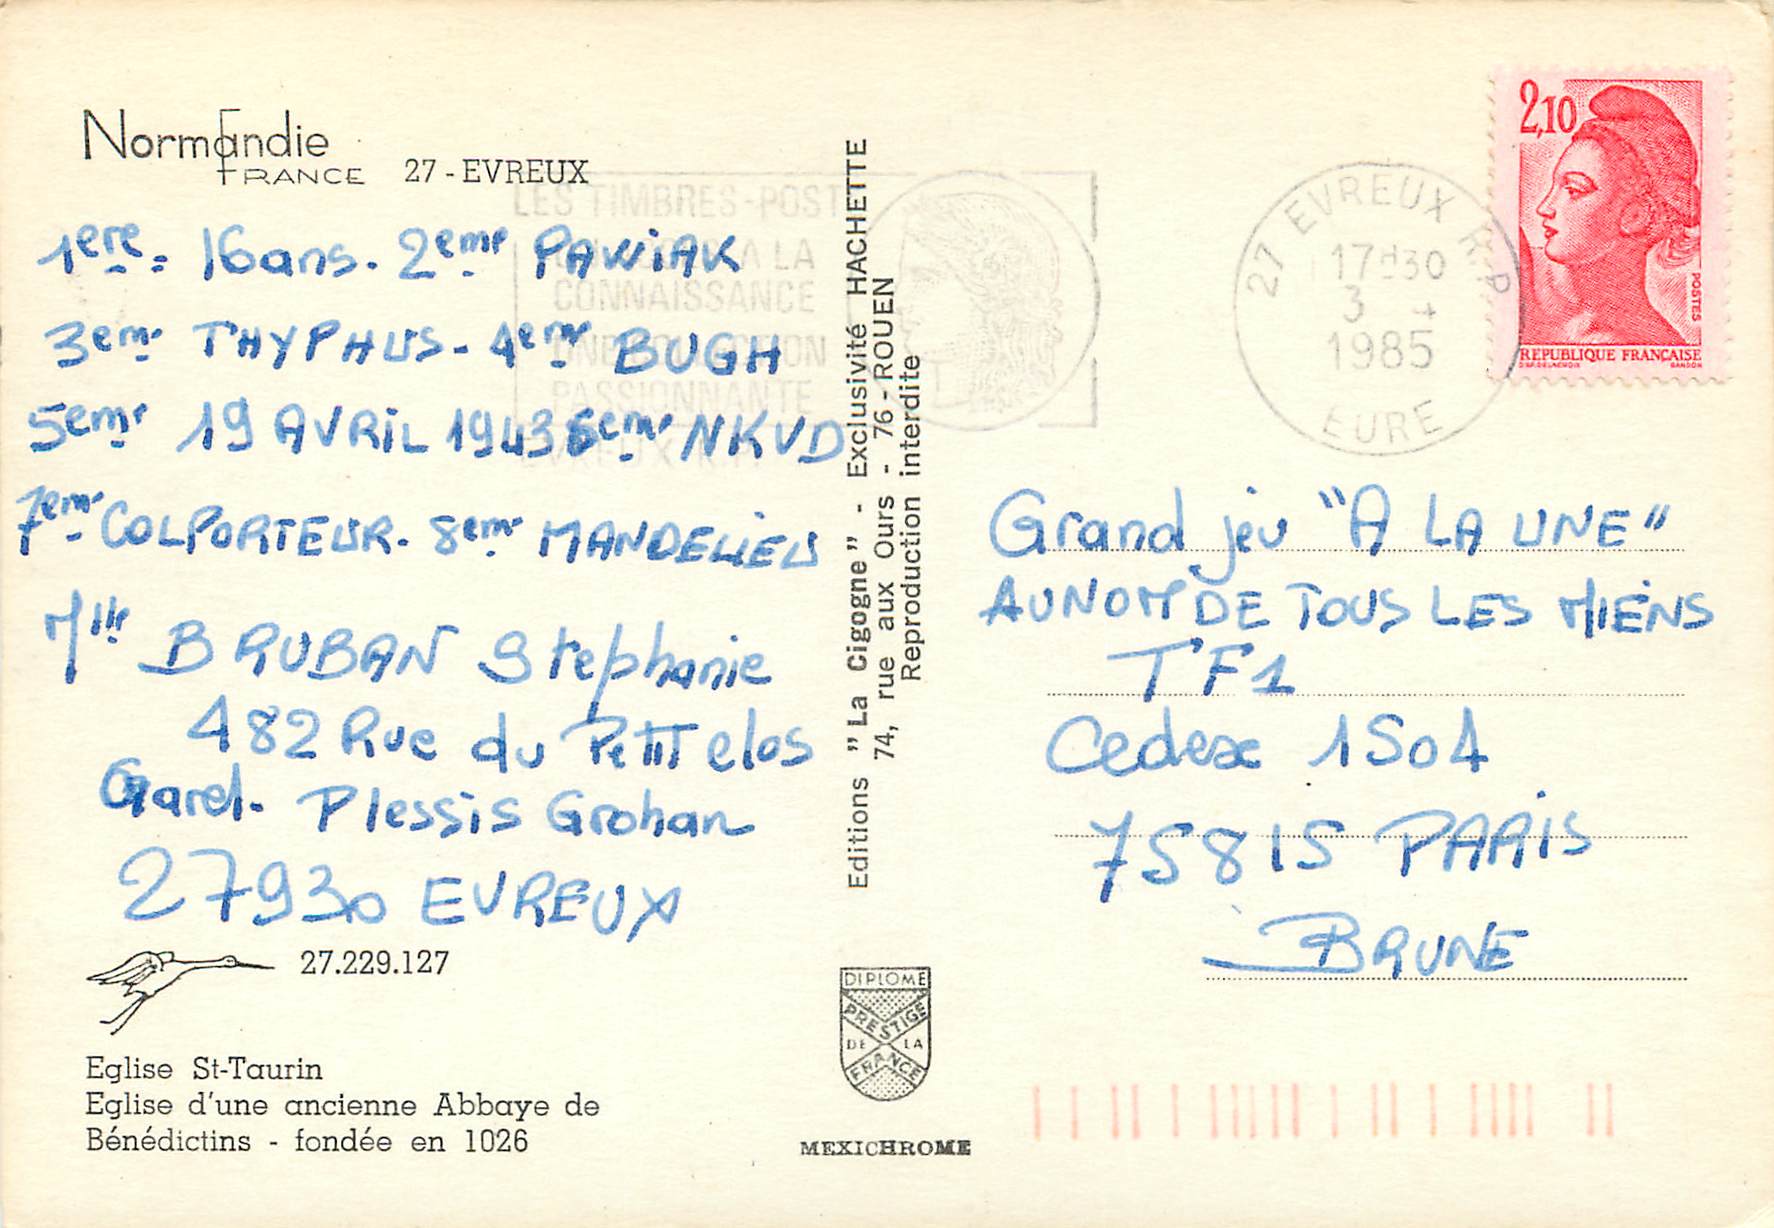 Normandie
FRANCE 27 - EVREUX
1ere = 16 ans. 2eme PAWIAK
3eme THYPHUS - 4eme BUGH
5eme 19 AVRIL 1943 6eme NKVD
7eme COLPORTEUR - 8eme MANDELIEU
Mlle BRUBAN Stephanie
482 Rue du Petit clos
Garel. Plessis Grohan
27930 EVREUX
27.229.127
Eglise St-Taurin
Eglise d'une ancienne Abbaye de
Bénédictins - fondée en 1026
LES TIMBRES-POST
A LA
CONNAISSANCE
PASSIONNANTE
EVREUX R.P.
Editions "La Cigogne" - Exclusivité HACHETTE
74, rue aux Ours - 76 - ROUEN
Reproduction interdite
DIPLOME
PRESTIGE
DE LA
FRANCE
MEXICHROME
27 EVREUX R.P.
17H30
3 - 4
1985
EURE
2,10
POSTES
REPUBLIQUE FRANÇAISE
D'AP. DELACROIX GANDON
Grand jeu "A LA UNE"
AU NOM DE TOUS LES MIENS
TF1
Cedex 1504
75815 PARIS
BRUNE